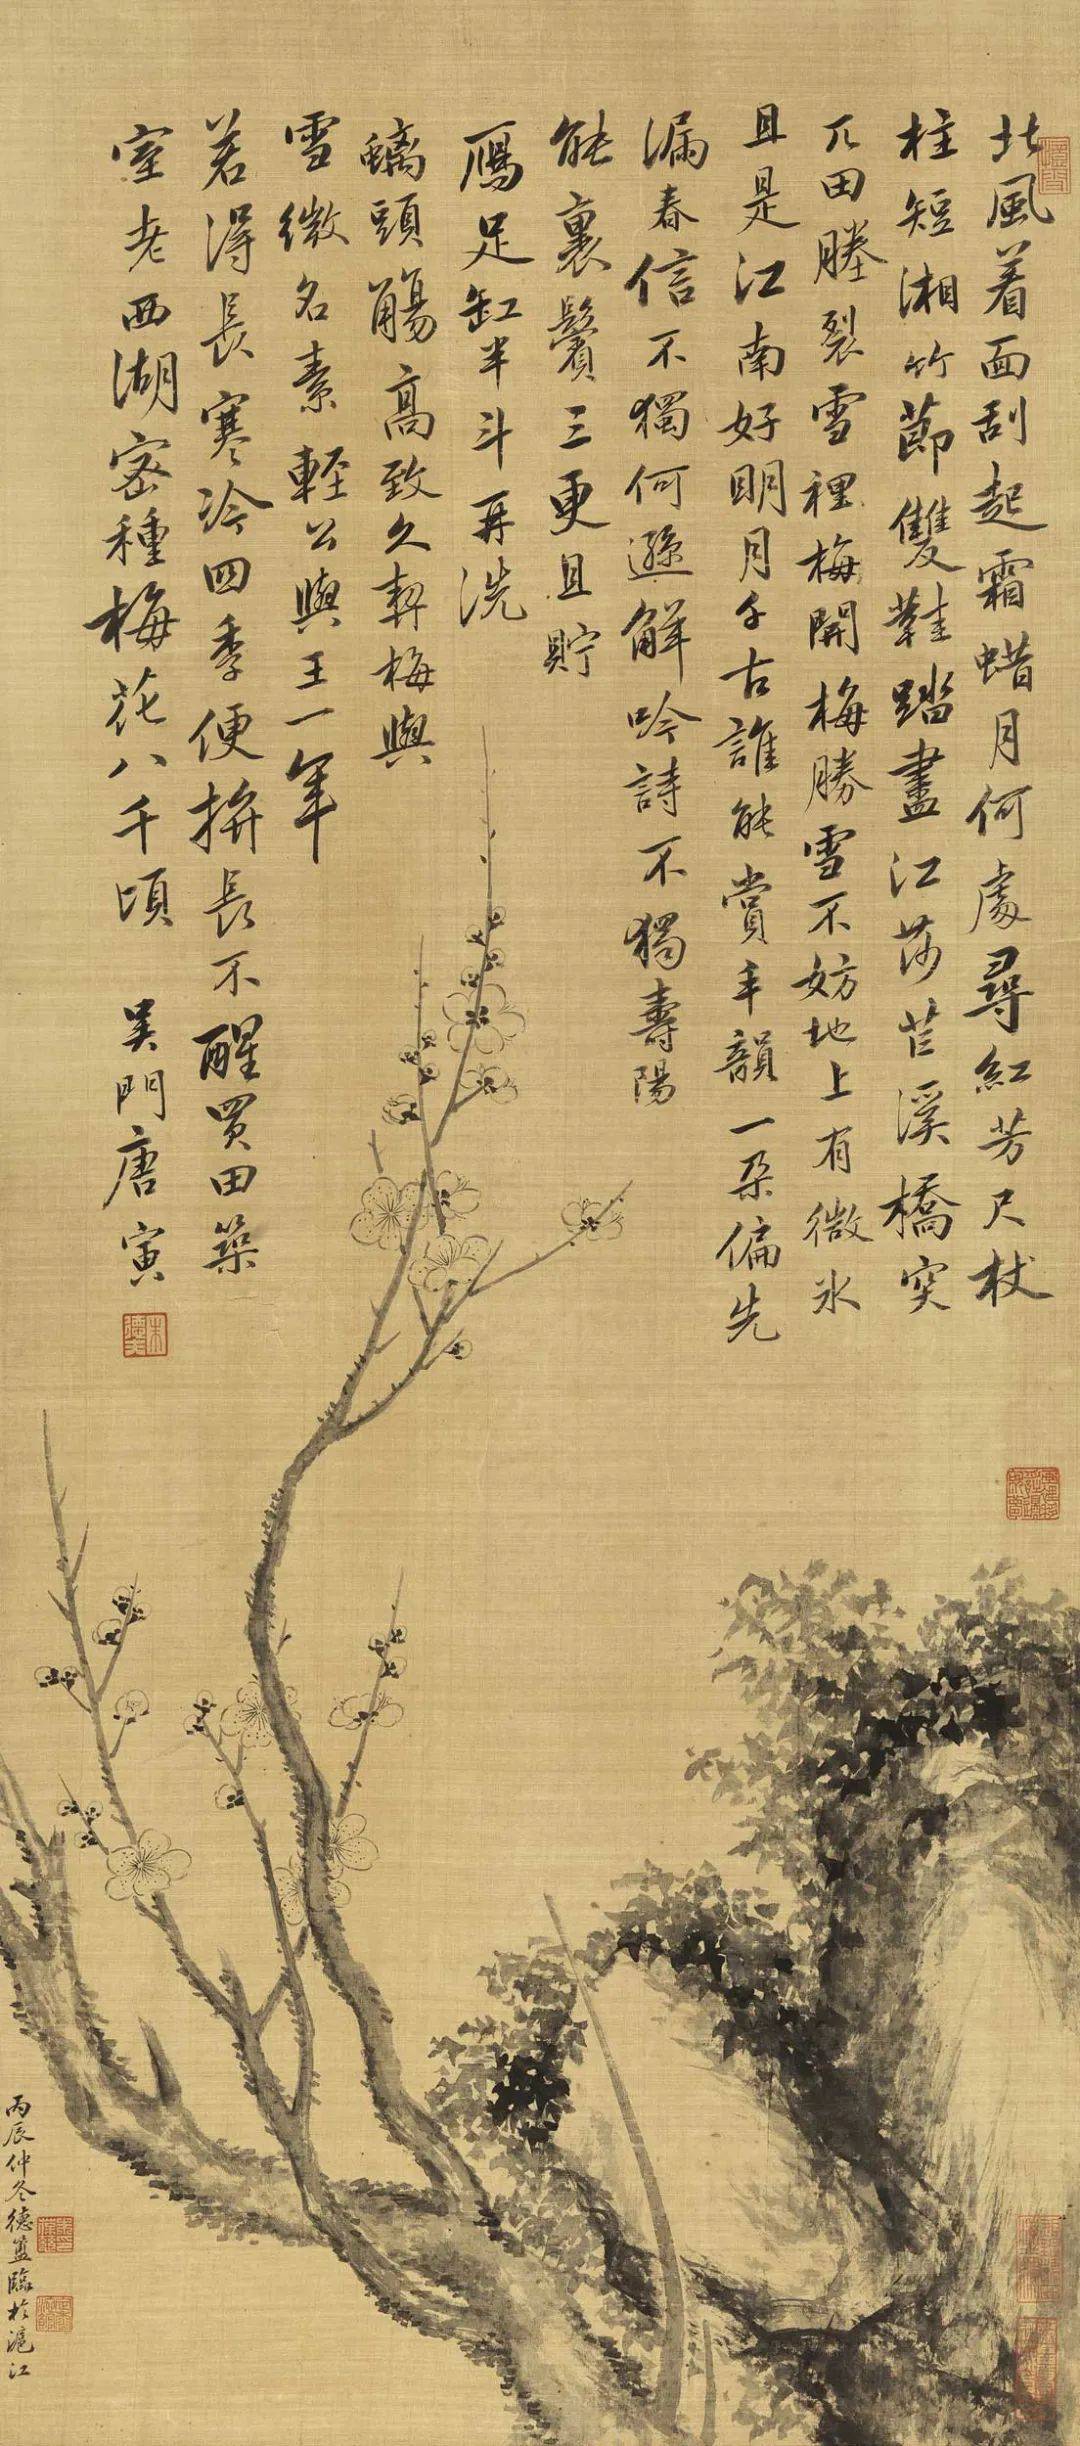 北風着面刮起霜蜡月何處尋紅芳尺杖
柱短湘竹節雙鞋踏盡江莎苔溪橋突
兀田塍裂雪裡梅開梅勝雪不妨地上有微冰
且是江南好明月千古誰能賞丰韻一朶偏先
漏春信不獨何遜解吟詩不獨壽陽
能裹鬢三更且貯
鴈足缸半斗再洗
螭頭觴高致久契梅與
雪微名素輕公與王一年
若得長寒冷四季便拚長不醒買田築
室老西湖密種梅花八千頃 吴門唐寅
丙辰仲冬德盦臨於滬江